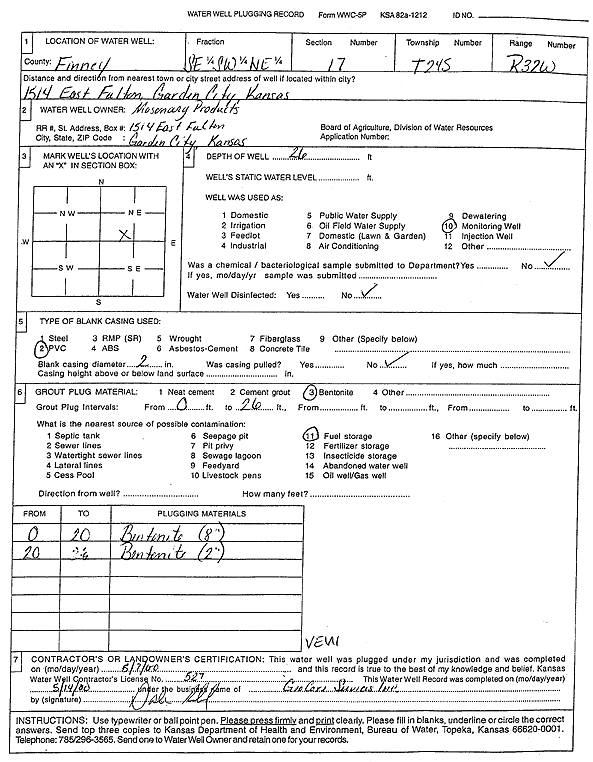 WATER WELL PLUGGING RECORD Form WWC-5P KSA 82a-1212 ID NO.
1 LOCATION OF WATER WELL: Fraction Section Number Township Number Range Number
County: Finney SE ¼ SW ¼ NE ¼ 17 T24S R32W
Distance and direction from nearest town or city street address of well if located within city?
1514 East Fulton, Garden City, Kansas
2 WATER WELL OWNER: Masonary Products
RR #, St. Address, Box #: 1514 East Fulton Board of Agriculture, Division of Water Resources
City, State, ZIP Code : Garden City, Kansas Application Number:
3 MARK WELL'S LOCATION WITH AN "X" IN SECTION BOX:
N
N W N E
X
W E
S W S E
S
4 DEPTH OF WELL 26 ft
WELL'S STATIC WATER LEVEL ft.
WELL WAS USED AS:
1 Domestic 5 Public Water Supply 9 Dewatering
2 Irrigation 6 Oil Field Water Supply 10 Monitoring Well
3 Feedlot 7 Domestic (Lawn & Garden) 11 Injection Well
4 Industrial 8 Air Conditioning 12 Other
Was a chemical / bacteriological sample submitted to Department? Yes No ✓
If yes, mo/day/yr sample was submitted
Water Well Disinfected: Yes No ✓
5 TYPE OF BLANK CASING USED:
1 Steel 3 RMP (SR) 5 Wrought 7 Fiberglass 9 Other (Specify below)
2 PVC 4 ABS 6 Asbestos-Cement 8 Concrete Tile
Blank casing diameter 2 in. Was casing pulled? Yes No ✓ If yes, how much
Casing height above or below land surface in.
6 GROUT PLUG MATERIAL: 1 Neat cement 2 Cement grout 3 Bentonite 4 Other
Grout Plug Intervals: From 0 ft. to 26 ft., From ft. to ft., From to ft.
What is the nearest source of possible contamination:
1 Septic tank 6 Seepage pit 11 Fuel storage 16 Other (specify below)
2 Sewer lines 7 Pit privy 12 Fertilizer storage
3 Watertight sewer lines 8 Sewage lagoon 13 Insecticide storage
4 Lateral lines 9 Feedyard 14 Abandoned water well
5 Cess Pool 10 Livestock pens 15 Oil well/Gas well
Direction from well? How many feet?
FROM TO PLUGGING MATERIALS
0 20 Bentonite (8")
20 26 Bentonite (2")
VEW
7 CONTRACTOR'S OR LANDOWNER'S CERTIFICATION: This water well was plugged under my jurisdiction and was completed
on (mo/day/year) 5/7/00 and this record is true to the best of my knowledge and belief. Kansas
Water Well Contractor's License No. 527 This Water Well Record was completed on (mo/day/year)
5/14/00 under the business name of GeoCore Services Inc.
by (signature)
INSTRUCTIONS: Use typewriter or ball point pen. Please press firmly and print clearly. Please fill in blanks, underline or circle the correct
answers. Send top three copies to Kansas Department of Health and Environment, Bureau of Water, Topeka, Kansas 66620-0001.
Telephone: 785/296-3565. Send one to Water Well Owner and retain one for your records.